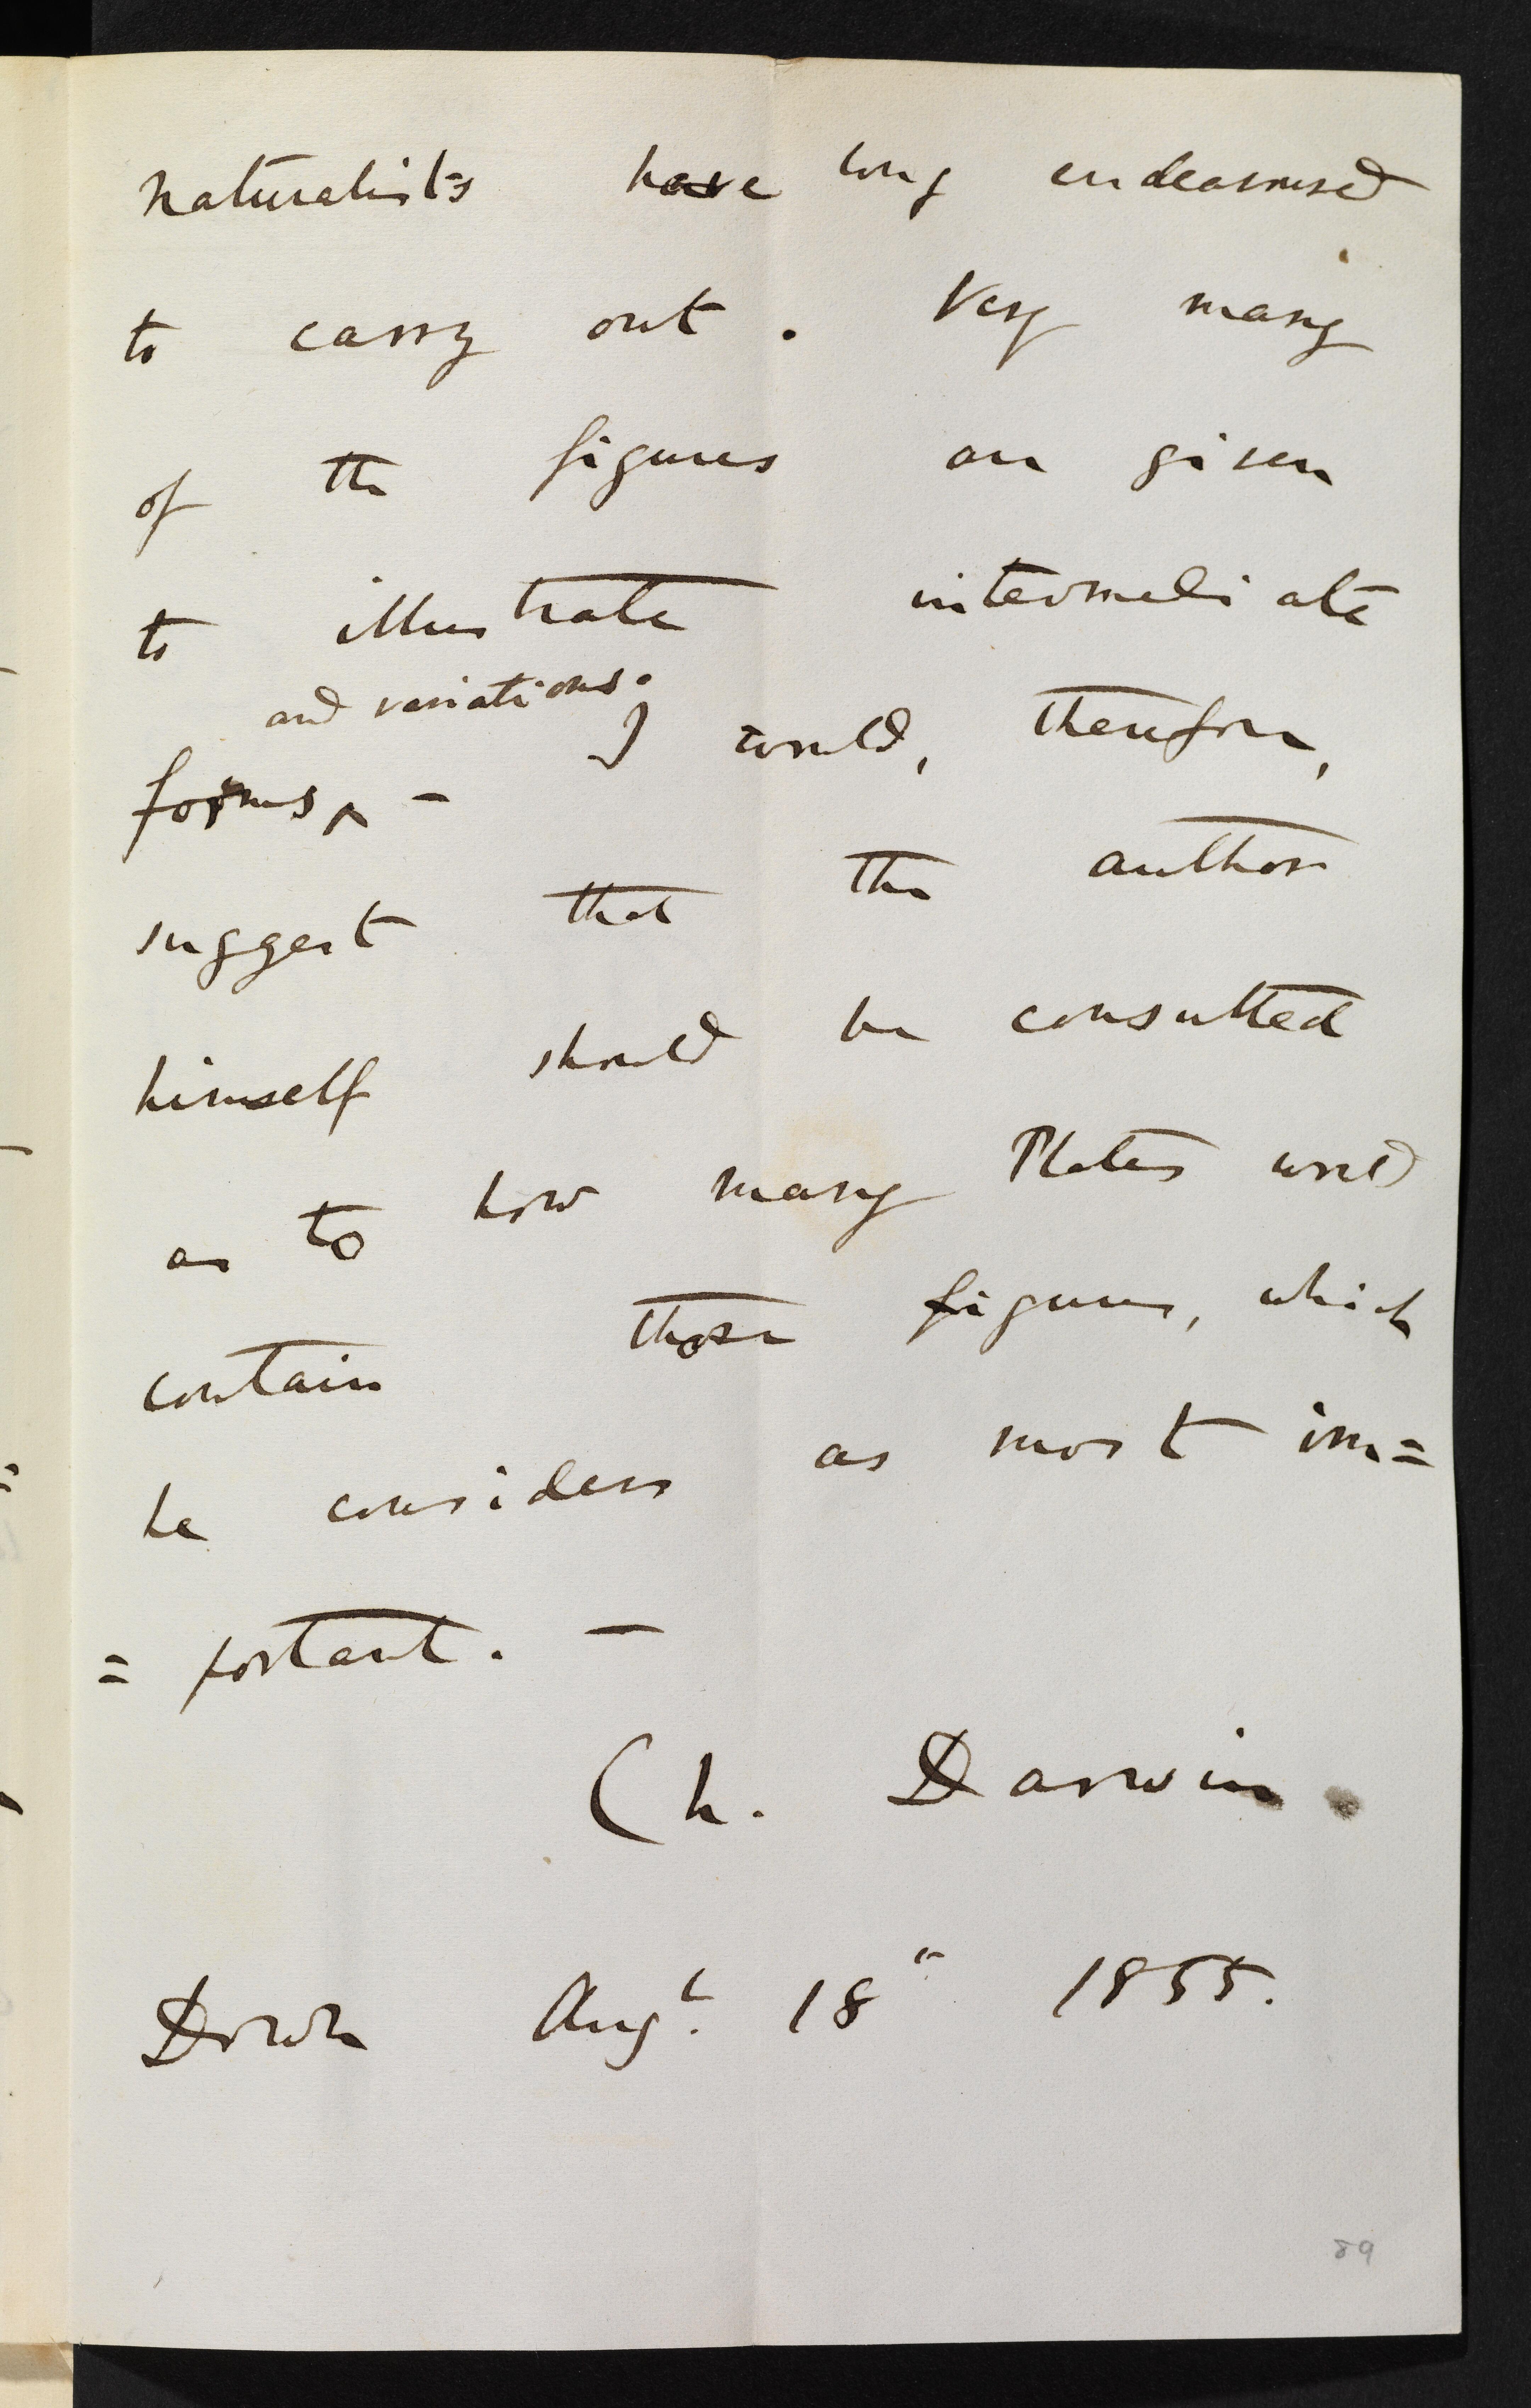 naturalists have long endeavoured
to carry out. Very many
of the figures are given
to illustrate intermediate
and variations.
forms, ^ – I would, therefore,
suggest that the author
himself should be consulted
as to how many Plates would
contain those figures, which
he considers as most im=
= portant. —
Ch. Darwin
Down Augt. 18th 1855.
89